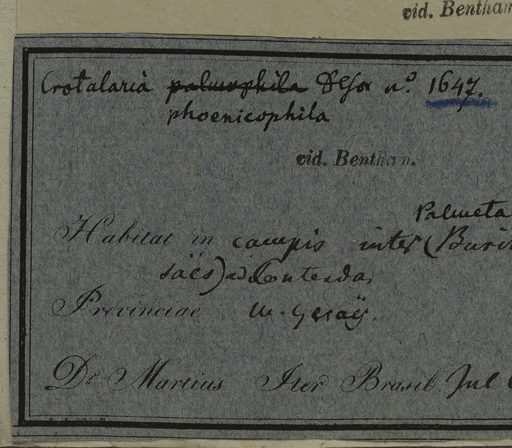 vid. Bentham
Crotularia palmophila n.º 1647.
phoenicophila
vid. Bentham.
Palmeta
Habitat in campis inter (Buri
säes) ad Contendas
Provinciae M. Geraÿ.
Dr. Martius Iter Brasil. Jul